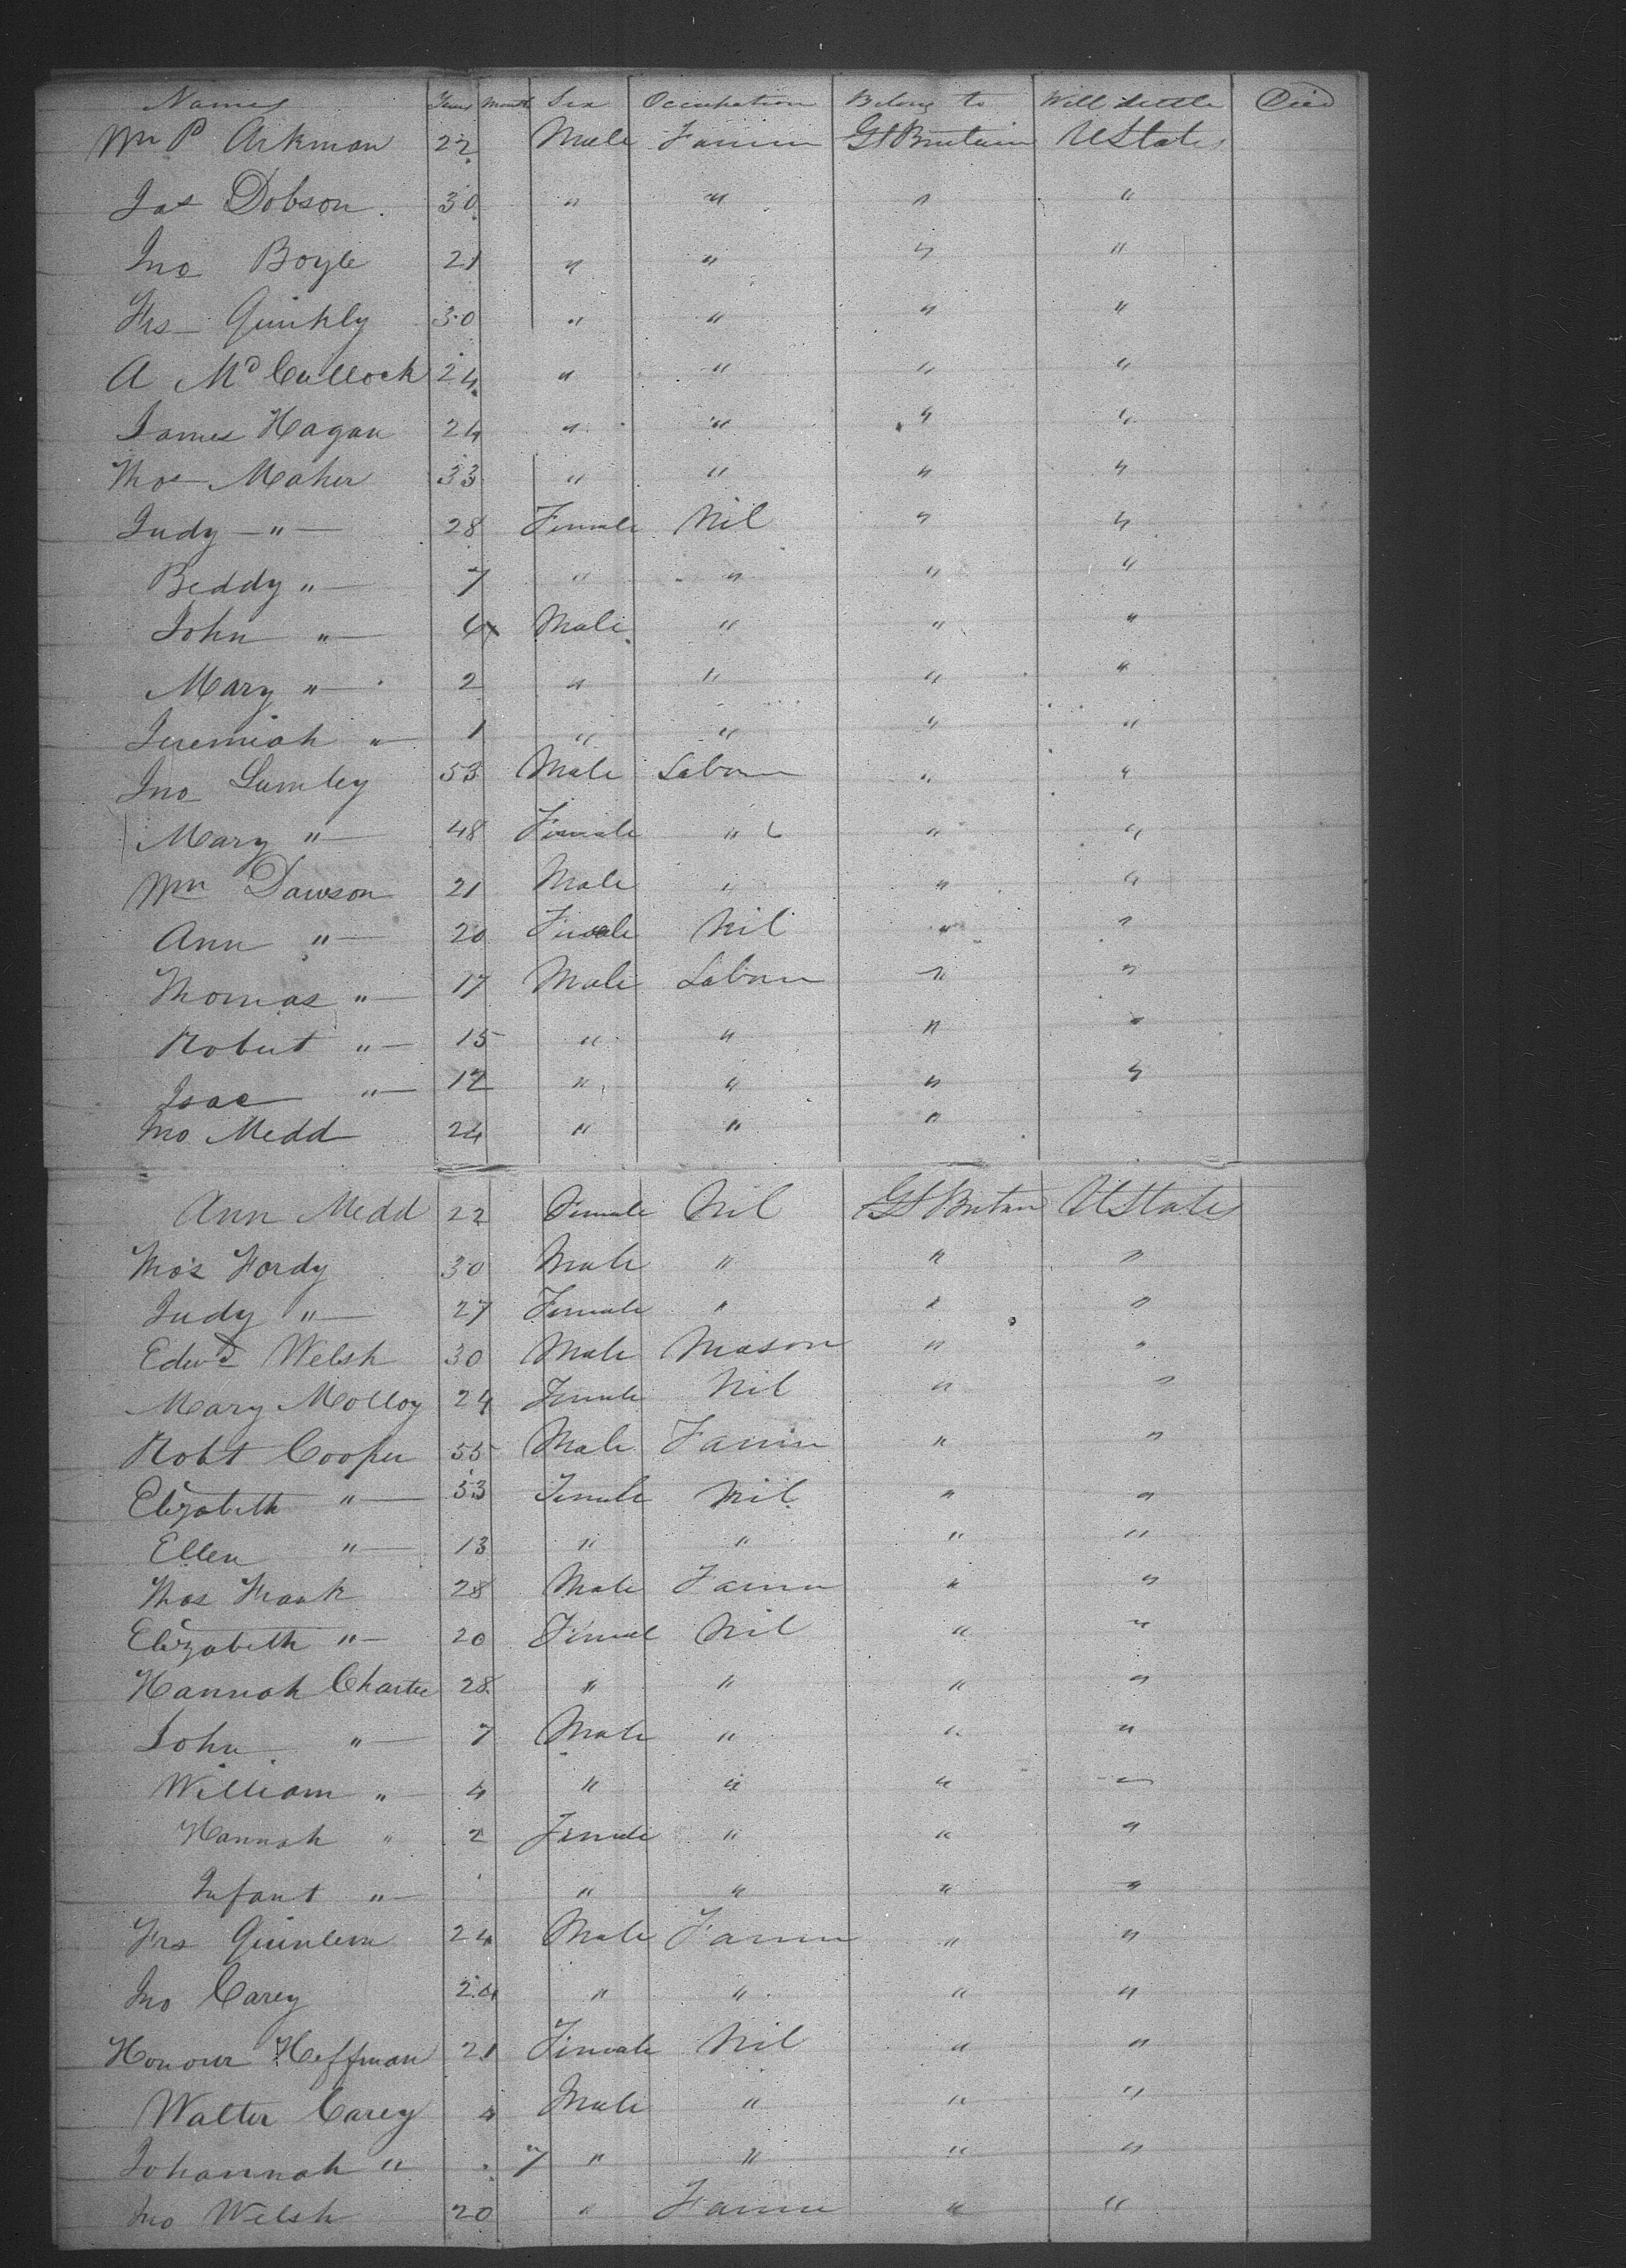 Names Years Month Sex Occupation Belong to Will Settle Died
Wm P Aikman 22 Male Farmer Gt Britain U States
Jas Dobson 30 " " " "
Jno Boyle 21 " " " "
Frs Quinkly 30 " " " "
A McCulloch 24 " " " "
James Hagan 24 " " " "
Thos Maher 33 " " " "
Judy " 28 Female Nil " "
Beddy " 7 " " " "
John " 4 Male " " "
Mary " 2 " " " "
Jeremiah " 1 " " " "
Jno Lumley 53 Male Labour " "
Mary " 48 Female " " "
Wm Dawson 21 Male " " "
Ann " 20 Female Nil " "
Thomas " 17 Male Labour " "
Robert " 15 " " " "
Isac " 12 " " " "
Jno Medd 24 " " "
Ann Medd 22 Female Nil Gt Britan U States
Thos Fordy 30 Male " " "
Judy " 27 Female " " "
Edwd Welsh 30 Male Mason " "
Mary Molloy 24 Female Nil " "
Robt Cooper 55 Male Farmer " "
Elizabeth " 53 Female Nil " "
Ellen " 13 " " " "
Thos Frank 28 Male Farmer " "
Elizabeth " 20 Female Nil " "
Hannah Charter 28 " " " "
John " 7 Male " " "
William " 4 " " " "
Hannah " 2 Female " " "
Infant " " " " "
Frs Quinlern 24 Male Farmer " "
Jno Carey 24 " " " "
Honour Heffman 21 Female Nil " "
Walter Carey 4 Male " " "
Johannah " 7 " " " "
Jno Welsh 20 " Farmer " "